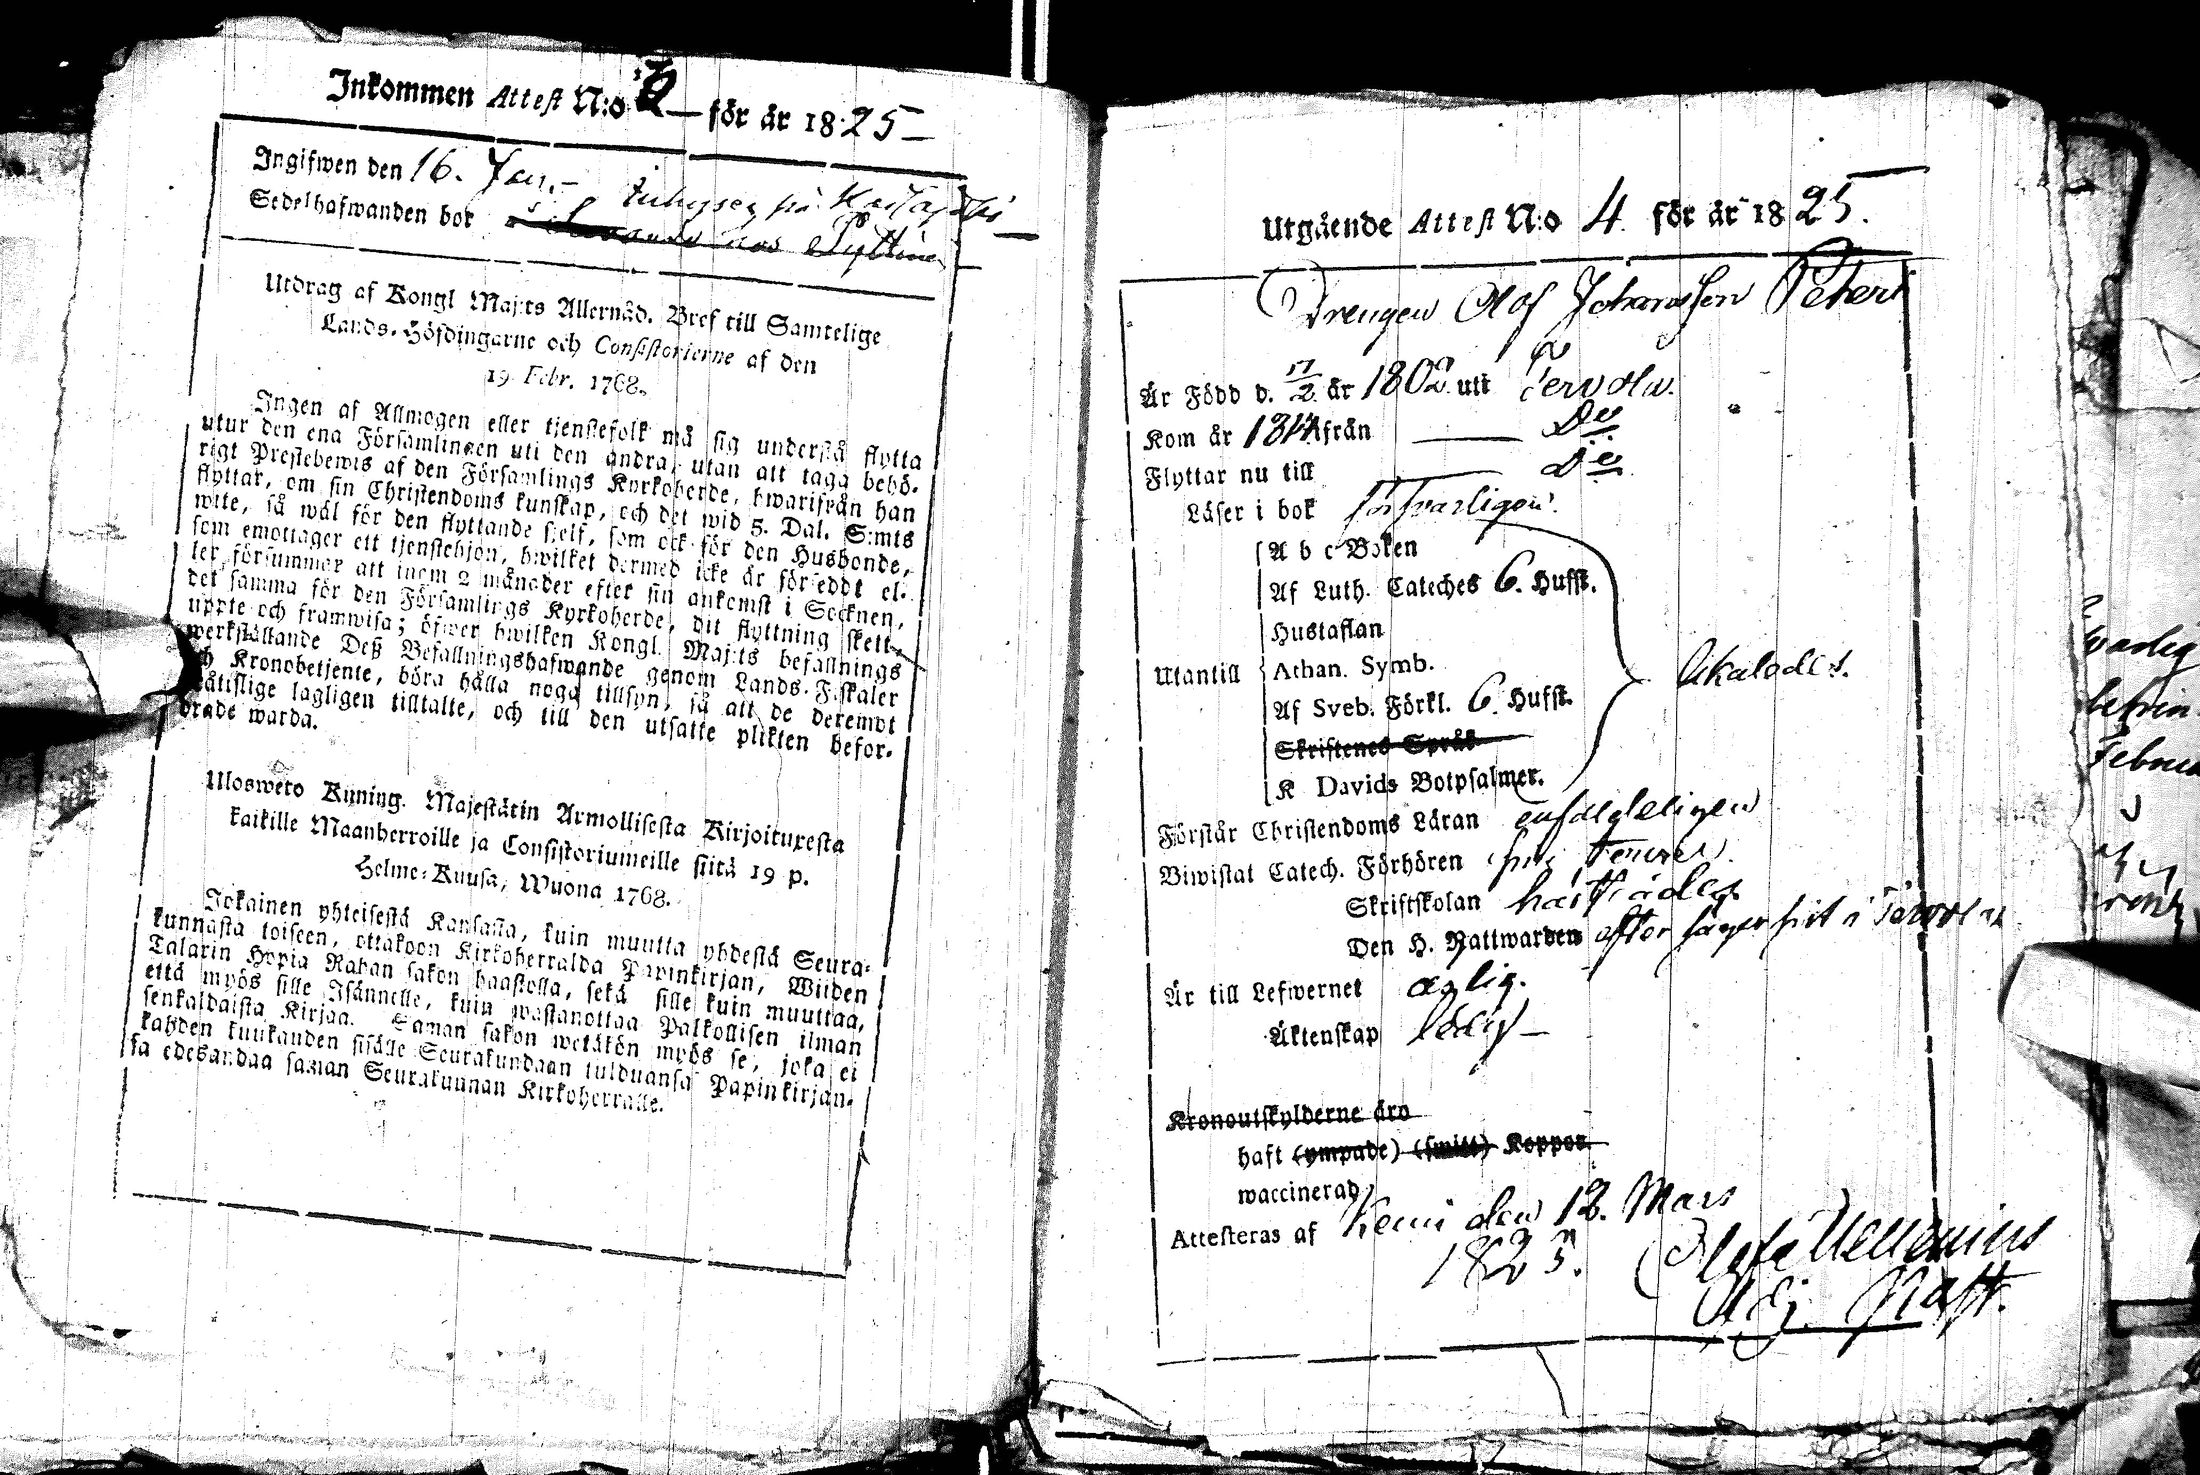 Inkommen Attest N:o 2 för är 1825
Ingifwen den 16. Jan. Inhyses på
Sedelhafwanden bor
Utdrag af Kongl Maj:ts Allernåd. Bref till Samtelige
Lands-Höfdingarne och Consistorierne af den
19 Febr. 1768.
Ingen af Allmogen eller tjenstefolk må sig understå flytta
utur den ena Församlingen uti den andra, utan att taga behö-
rigt Prestebewis af den Församlings Kyrkoherde, hwarifrån han
flyttar, om sin Christendoms kunskap, och det wid 5. Dal. S:mts
wite, så wäl för den flyttande sjelf, som ock för den Husbonde,
som emottager ett tjenstehjon, hwilket dermed icke är förseddt el-
ler försummar att inom 2 månader efter sin ankomst i Socknen,
det samma för den Församlings Kyrkoherde, dit flyttning skett,
uppte och framwisa; öfwer hwilken Kongl. Maj:ts befallnings
werkställande Deß Befallningshafwande genom Lands-Fiskaler
och Kronobetjente, böra hålla noga tillsyn, så att de deremot
bråtislige lagligen tilltalte, och till den utsatte plikten befor-
drade warda.
Uloswето Kuning. Majestätin Armollisesta Kirjoituxesta
kaikille Maanherroille ja Consistoriumeille siitä 19 p.
Helme-Kuusa, Wuona 1768.
Jokainen yhteisestä Kansasta, kuin muutta yhdestä Seura-
kunnasta toiseen, ottakoon Kirkoherralda Papinkirjan, Wiiden
Talarin Hopia Rahan sakon haastolla, sekä sille kuin muuttaa,
että myös sille Isännelle, kuin wastanottaa Palkollisen ilman
senkaldaista Kirjaa. Saman sakon wetäkön myös se, joka ei
kahden kuukanden sisälle Seurakundaan tulduansa Papinkirjan-
sa edesandaa saman Seurakunnan Kirkoherralle.
Utgående Attest N:o 4 för är 1825.
Drengen Olof Johansson Petteri
Är Född d. 17/2 är 1802 uti Tervola.
Kom är 1814 från Do
Flyttar nu till Do
Läser i bok försvarligen.
A b c Boken
Af Luth. Cateches 6. Hufst.
Hustaflan
Utantill Athan. Symb. likaledes.
Af Sveb. Förkl. 6. Hufst.
Skriftenes Språk
K Davids Botpsalmer.
Förstår Christendoms Läran enfaldeligen
Biwistat Catech. Förhören
Skriftskolan härstädes
Den H. Nattwarden efter i Tervola
Är till Lefwernet
Äktenskap ledig
Kronoutskylderne äro
haft (ympade) (smitt) Koppor
waccinerad
Attesteras af Kemi den 12. Mars
1825.